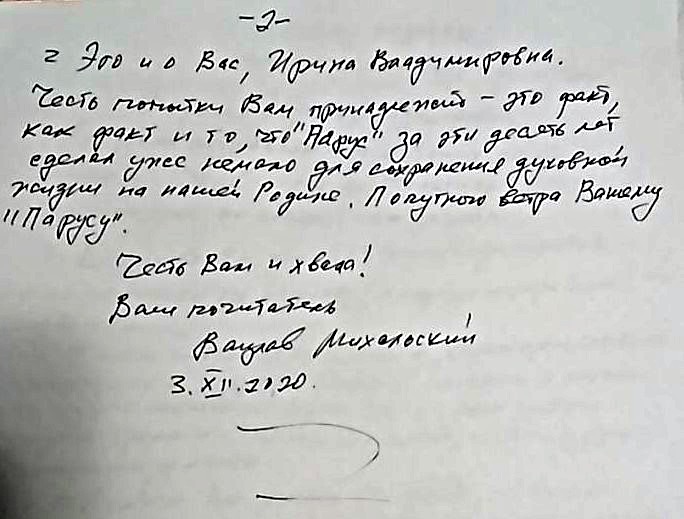 -2-
Это и о Вас, Ирина Владимировна.
Честь попытки Вам принадлежит - это факт,
как факт и то, что "Парус" за эти десять лет
сделал уже немало для сохранения духовной
жизни на нашей Родине. Попутного ветра Вашему
"Парусу".
Честь Вам и хвала!
Ваш почитатель
Вацлав Михальский
3.XII.2020.